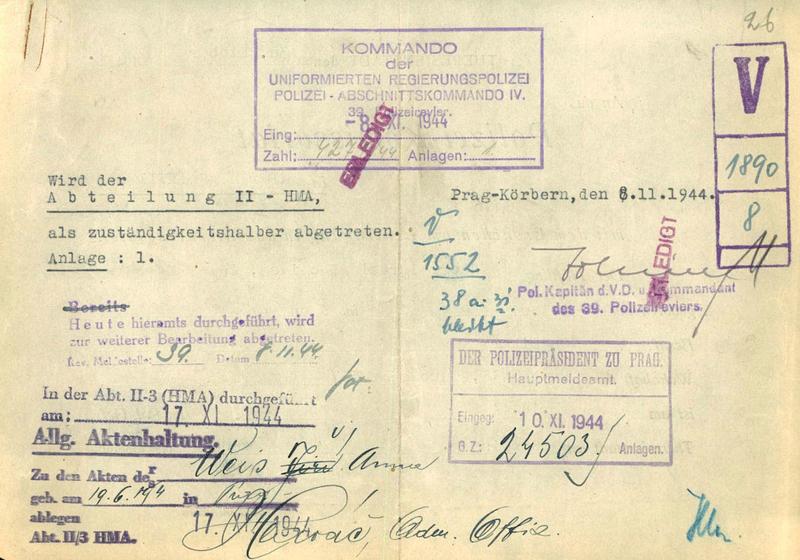 26
KOMMANDO
der
UNIFORMIERTEN REGIERUNGSPOLIZEI
POLIZEI - ABSCHNITTSKOMMANDO IV.
39. Polizeirevier.
-8. XI. 1944
Eing:
Zahl: 427 44 Anlagen: 1
ERLEDIGT
V
1890
8
Wird der
Abteilung II - HMA,
als zuständigkeitshalber abgetreten.
Anlage : 1.
Prag-Körbern, den 8.11.1944.
V
1552
38
bleibt
ERLEDIGT
Pol. Kapitän d.V.D. u. Kommandant
des 39. Polizeireviers.
Bereits
Heute hieramts durchgeführt, wird
zur weiterer Bearbeitung abgetreten.
Rev. Meldestelle: 39. Datum 8.11.44
DER POLIZEIPRÄSIDENT ZU PRAG.
Hauptmeldeamt.
Eingeg: 10 XI. 1944
G.Z.: 24503 Anlagen.
In der Abt. II-3 (HMA) durchgeführt
am: 17 XI. 1944
Allg. Aktenhaltung.
Zu den Akten der Weis Anna
geb. am 19.6.194 in
ablegen 17 XI 1944
Abt. II/3 HMA.
Adm. Offiz.